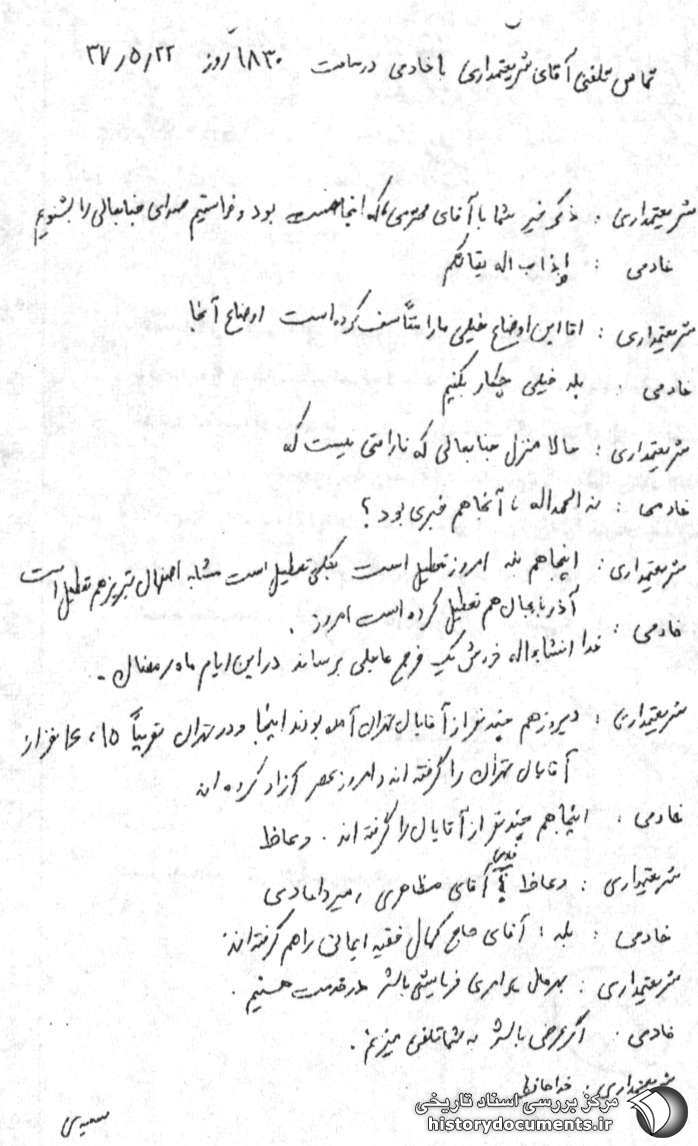 تماس تلفنی آقای شریعتمداری با خادمی در ساعت ۱۸۳۰ روز ۳۷/۵/۲۲
شریعتمداری : ذکر خیر شما با آقای محترمی که اینجا هست بود و خواستیم صدای جنابعالی را بشنویم
خادمی : اله بقائکم
شریعتمداری : اما این اوضاع خیلی ما را متأسف کرده است اوضاع آنجا
خادمی : بله خیلی چکار بکنیم
شریعتمداری : حالا منزل جنابعالی که ناراحتی نیست که
خادمی : نه الحمداله ، آنجا هم خبری بود ؟
شریعتمداری : اینجا هم نه امروز تعطیل است بکلی تعطیل است مشابه اصفهان تبریز هم تعطیل است
آذربایجان هم تعطیل کرده است امروز .
خادمی : خدا انشاءاله خودش یک فرج عاجلی برساند در این ایام ماه رمضان .
شریعتمداری : دیروز هم چند نفر از آقایان تهران آمده بودند اینجا و در تهران تقریباً ۱۵ ، ۱۶ نفر از
آقایان تهران را گرفته اند و امروز عصر آزاد کرده اند
خادمی : اینجا هم چند نفر از آقایان را گرفته اند . وعاظ
شریعتمداری : وعاظ ؟ آقای مظاهری ، میردامادی
خادمی : بله : آقای حاج کمال فقیه ایمانی را هم گرفته اند
شریعتمداری : بهرحال امری فرمایشی باشد در خدمت هستیم .
خادمی : اگر عرضی باشد به شما تلفن میزنم .
شریعتمداری : خداحافظ
مرکز بررسی اسناد تاریخی
historydocuments.ir